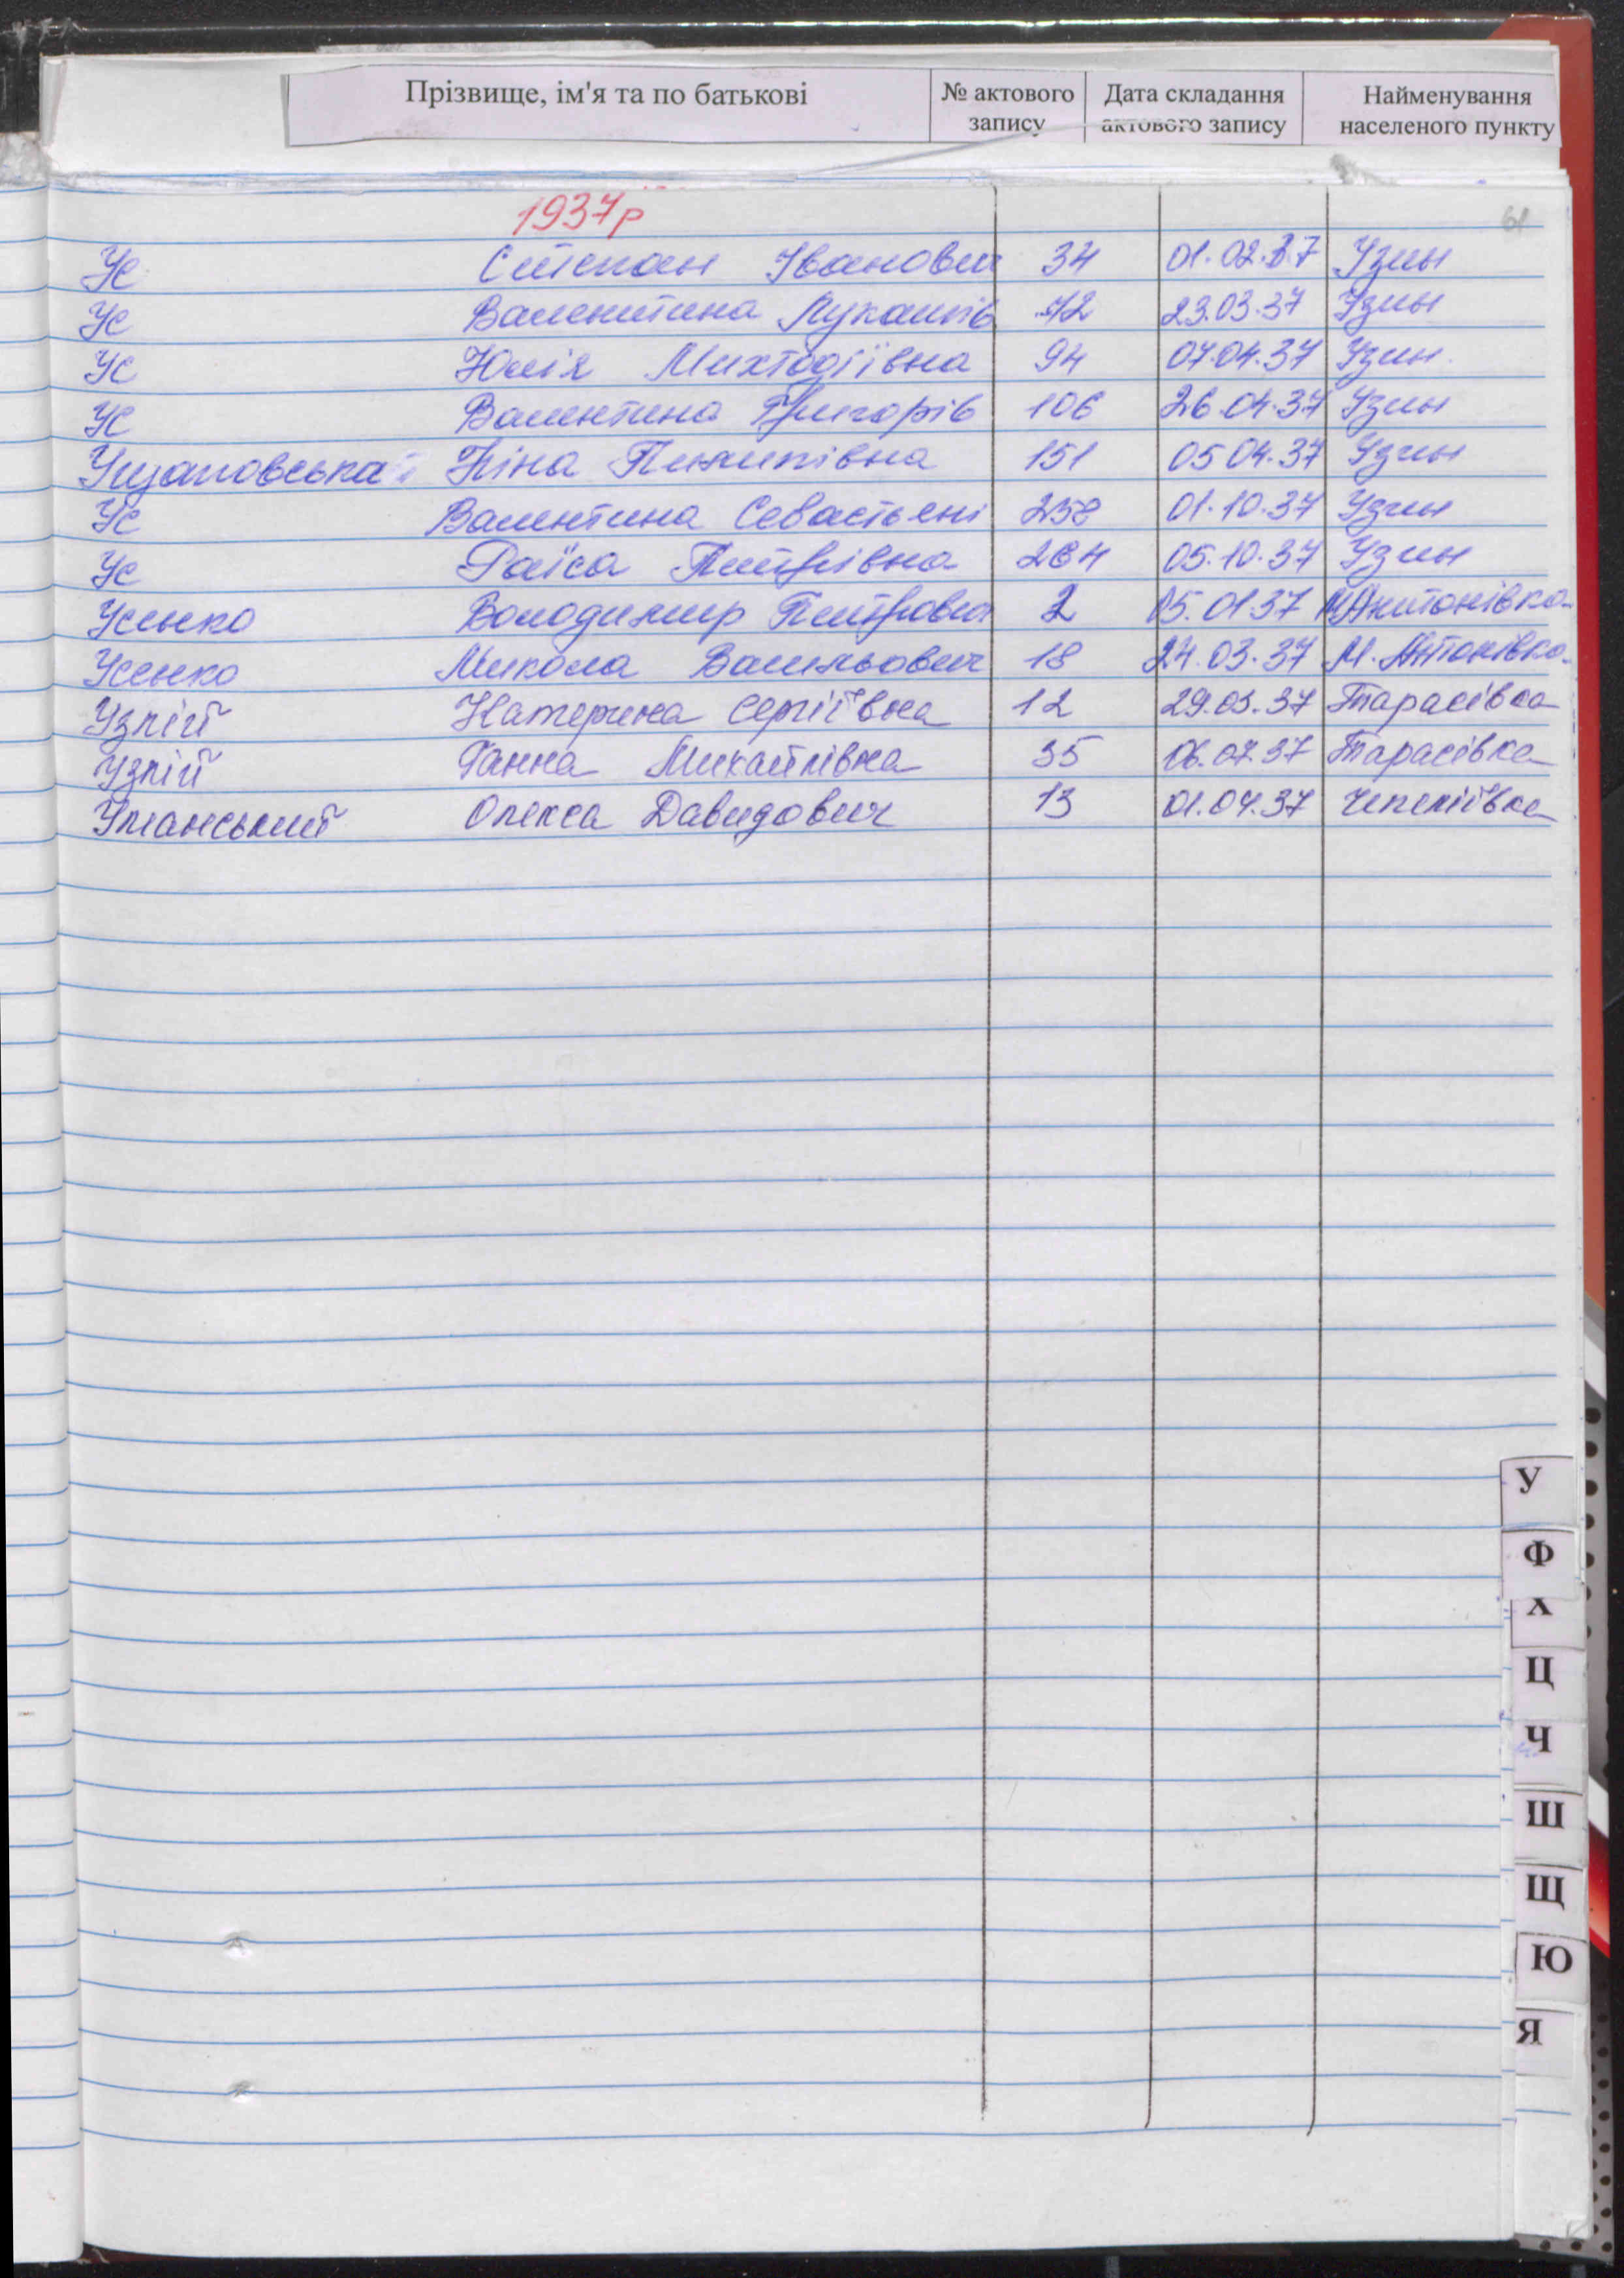 Прізвище, ім'я та по батькові № актового запису Дата складання актового запису Найменування населеного пункту
61
1937р
Ус Степан Іванович 34 01.02.37 Узин
Ус Валентина Лукашів 72 23.03.37 Узин
Ус Юлія Михтодіївна 94 07.04.37 Узин
Ус Валентина Григорів 106 26.04.37 Узин
Ніна Пилипівна 151 05 04.37 Узин
Ус Валентина Севастьяні 258 01.10.37 Узин
Ус Раїса Петрівна 264 05.10.37 Узин
Усенко Володимир Петрович 2 05.01 37 М.Антонівка
Усенко Микола Васильович 18 24.03.37 М. Антонівка
Узпій Катерина Сергіївна 12 29.03.37 Тарасівка
Узпій Ганна Михайлівна 35 06.07.37 Тарасівка
Уманський Олекса Давидович 13 01.04.37 Чепеліївка
У
Ф
Х
Ц
Ч
Ш
Щ
Ю
Я